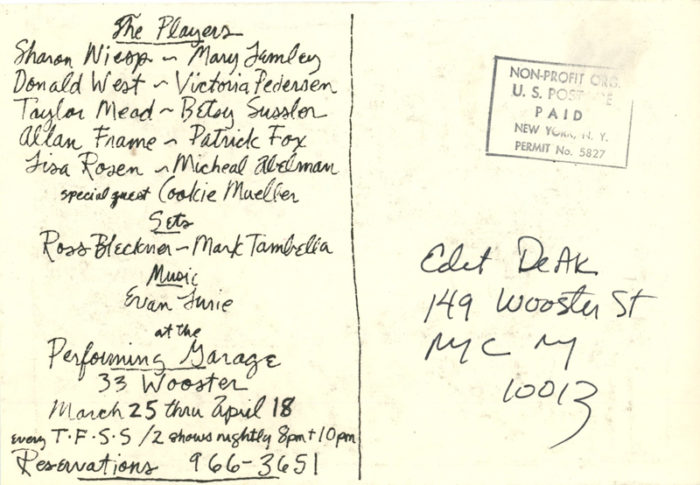 The Players
Sharon Niesp ~ Mary Lemley
Donald West ~ Victoria Pedersen
Taylor Mead ~ Betsy Sussler
Allan Frame ~ Patrick Fox
Lisa Rosen ~ Micheal Abelman
special guest Cookie Mueller
Sets
Ross Bleckner ~ Mark Tambella
Music
Evan Lurie
at the
Performing Garage
33 Wooster
March 25 thru April 18
every T·F·S·S /2 shows nightly 8pm + 10pm
Reservations 966-3651
NON-PROFIT ORG.
U. S. POSTAGE
PAID
NEW YORK, N. Y.
PERMIT No. 5827
Edit DeAk
149 Wooster St
NYC NY
10013